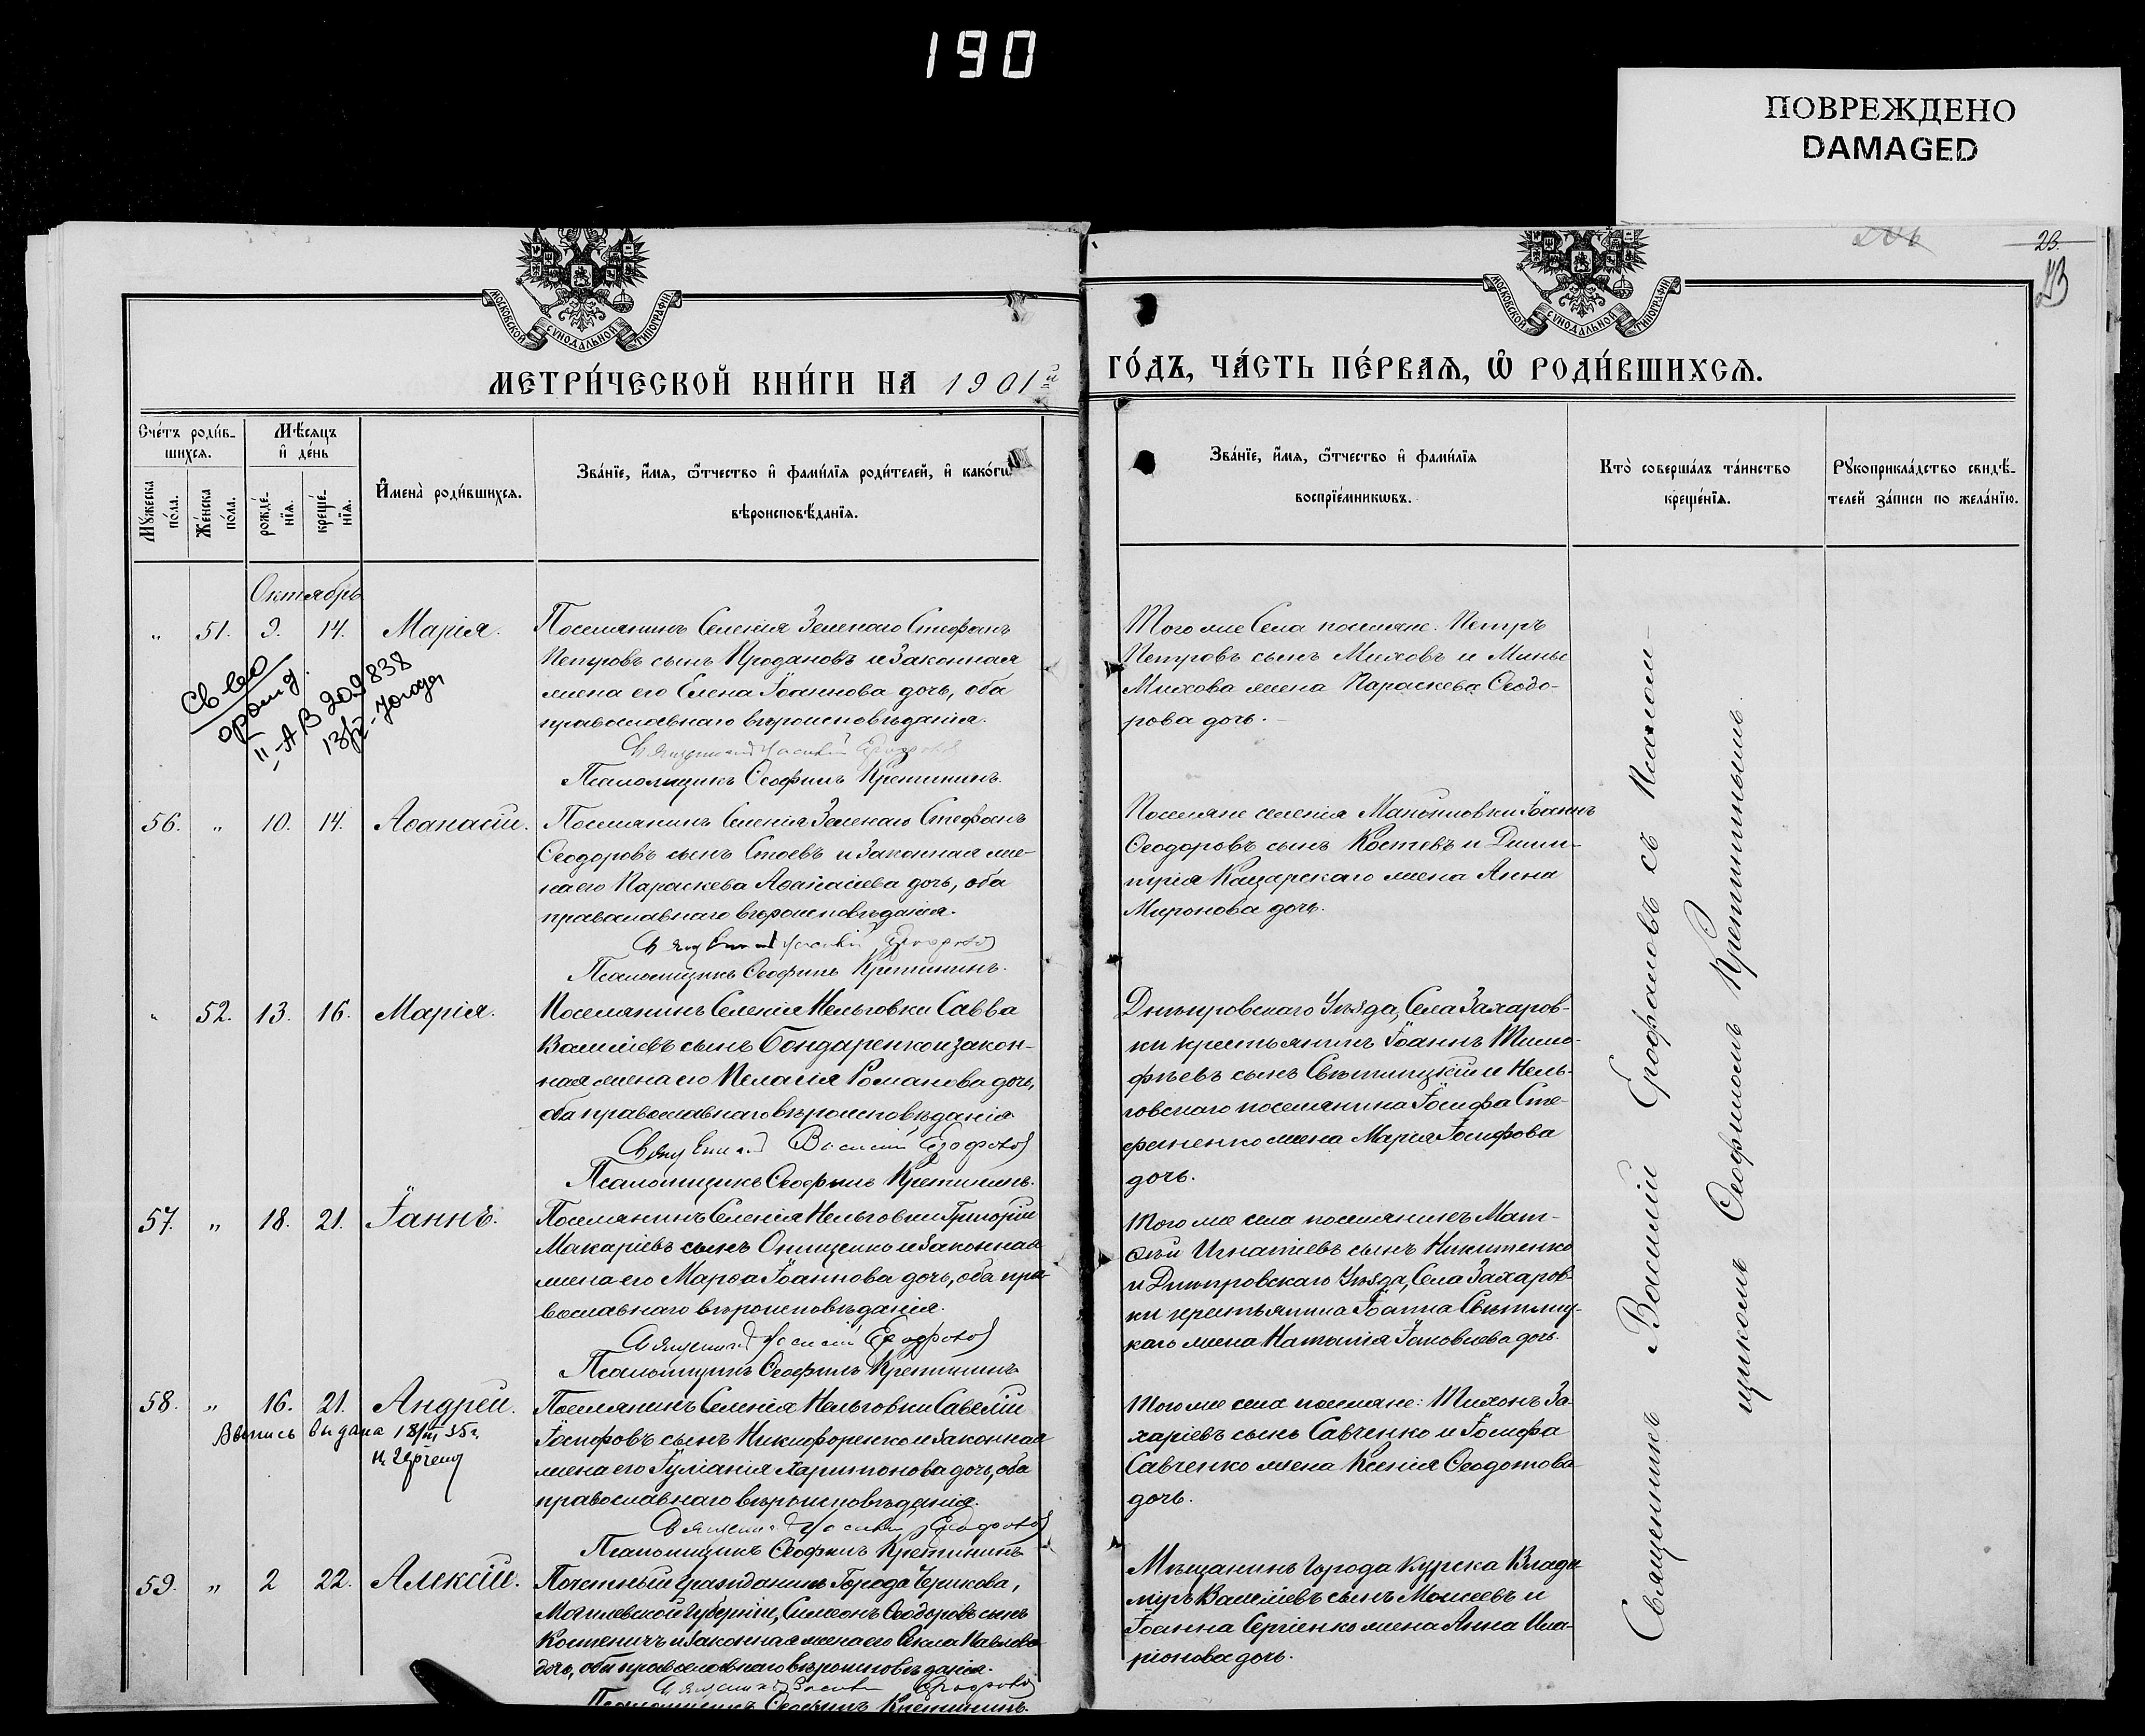 190
ПОВРЕЖДЕНО
DAMAGED
23.
МОСКОВСКОЙ СУНОДАЛЬНОЙ ТИПОГРАФІИ
МОСКОВСКОЙ СУНОДАЛЬНОЙ ТИПОГРАФІИ
МЕТРИ́ЧЕСКОЙ КНИ́ГИ НА 1901й
ГО́ДЪ, ЧА́СТЬ ПЕ́РВАѦ, Ѡ҆ РОДИ́ВШИХСѦ.
Сче́тъ роди́в-
шихсѧ.
Мѣ́сѧцъ
и҆ де́нь
Мꙋ́жеска
по́ла.
Же́нска
по́ла.
рожде́-
нїѧ.
креще́-
нїѧ.
И҆мена̀ роди́вшихсѧ.
Зва́нїе, и҆́мѧ, ѻ҆́тчество и҆ фами́лїѧ роди́телей, и҆ како́гѡ
вѣроисповѣ́данїѧ.
Зва́нїе, и҆́мѧ, ѻ҆́тчество и҆ фами́лїѧ
воспрїе́мникѡвъ.
Кто̀ соверша́лъ та́инство
креще́нїѧ.
Рꙋкоприкла́дство свидѣ́-
телей за́писи по жела́нїю.
Октябрь
„ 51. 9. 14. Марія.
Поселянинъ Селенія Зеленаго Стефанъ
Петровъ сынъ Продановъ и законная
жена его Елена Іоаннова дочь, оба
православнаго вѣроисповѣданія.
Священникъ Василій Ерофаловъ
Псаломщикъ Ѳеофилъ Кретининъ.
Того же Села поселяне: Петръ
Петровъ сынъ Миховъ и Миньи
Михова жена Параскева Ѳеодо-
рова дочь.
Св-во
II-АВ 209838
56. „ 10. 14. Аѳанасій.
Поселянинъ Селенія Зеленаго Стефанъ
Ѳеодоровъ сынъ Стоевъ и законная же-
на его Параскева Аѳанасіева дочь, оба
православнаго вѣроисповѣданія.
Священникъ Василій Ерофаловъ
Псаломщикъ Ѳеофилъ Кретининъ.
Поселяне селенія Мануиловки Іоаннъ
Ѳеодоровъ сынъ Костевъ и Дими-
трія Кацарскаго жена Анна
Миронова дочь.
„ 52. 13. 16. Марія.
Поселянинъ Селенія Нельговки Савва
Василіевъ сынъ Бондаренко и закон-
ная жена его Пелагія Романова дочь,
оба православнаго вѣроисповѣданія
Священникъ Василій Ерофаловъ
Псаломщикъ Ѳеофилъ Кретининъ.
Днѣпровскаго Уѣзда, Села Захаров-
ки крестьянинъ Іоаннъ Тимо-
фѣевъ сынъ Свѣтлицкій и Нель-
говскаго поселянина Іосифа Сте-
фаненко жена Марія Іосифова
дочь.
57. „ 18. 21. Іаннъ.
Поселянинъ Селенія Нельговки Григорій
Макаріевъ сынъ Онищенко и законная
жена его Марѳа Іоаннова дочь, оба пра-
вославнаго вѣроисповѣданія.
Священникъ Василій Ерофаловъ
Псаломщикъ Ѳеофилъ Кретининъ
Того же села поселянинъ Мат-
ѳѣй Игнатіевъ сынъ Никитенко
и Днѣпровскаго Уѣзда, Села Захаров-
ки крестьянина Іоанна Свѣтлиц-
каго жена Наталія Іаковлева дочь.
58. „ 16. 21. Андрей.
Выпись выдана
Поселянинъ Селенія Нельговки Савелій
Іосифовъ сынъ Никифоренко и законная
жена его Іуліанія Харитонова дочь, оба
православнаго вѣроисповѣданія.
Священникъ Василій Ерофаловъ
Псаломщикъ Ѳеофилъ Кретининъ
Того же села поселяне: Тихонъ За-
харіевъ сынъ Савченко и Іосифа
Савченко жена Ксенія Ѳеодотова
дочь.
59. „ 2 22. Алексій.
Почетный гражданинъ Города Черикова,
Могилевской губерніи, Симеонъ Ѳеодоровъ сынъ
Костеничъ и законная жена его Ѳекла Павлова
дочь, оба православнаго вѣроисповѣданія.
Священникъ Василій Ерофаловъ
Псаломщикъ Ѳеофилъ Кретининъ.
Мѣщанинъ города Курска Влади-
міръ Василіевъ сынъ Моисеевъ и
Іоанна Сергіенко жена Анна Ила-
ріонова дочь.
Священникъ Василій Ерофаловъ съ Псалом-
щикомъ Ѳеофиломъ Кретининымъ